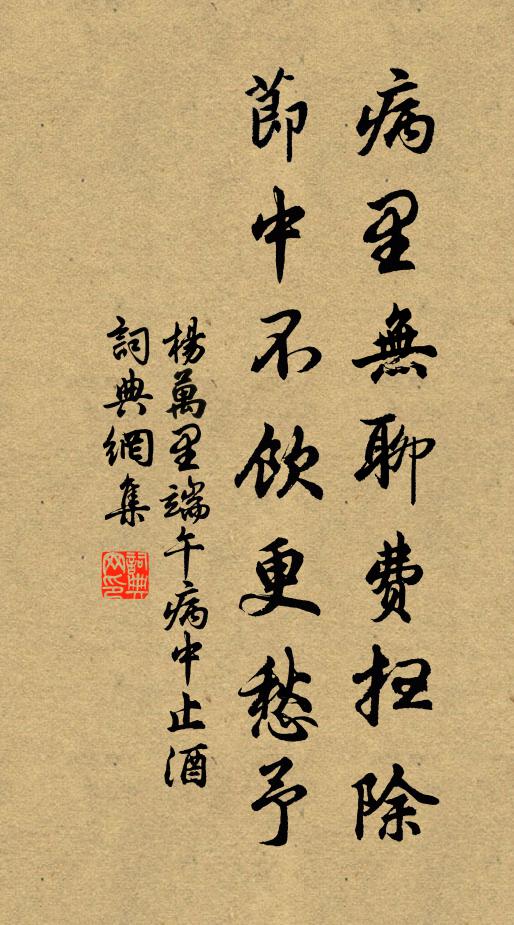 病里無聊費掃除
節中不飲更愁予
楊萬里端午病中止酒
詞典網集
詞典
网印